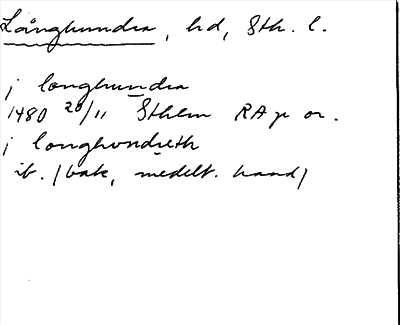 Långhundra, hd, Sth. l.
j longhundra
1480 20/11 Sthlm RAp or.
j longhvndreth
ib. (bak, medelt. hand)